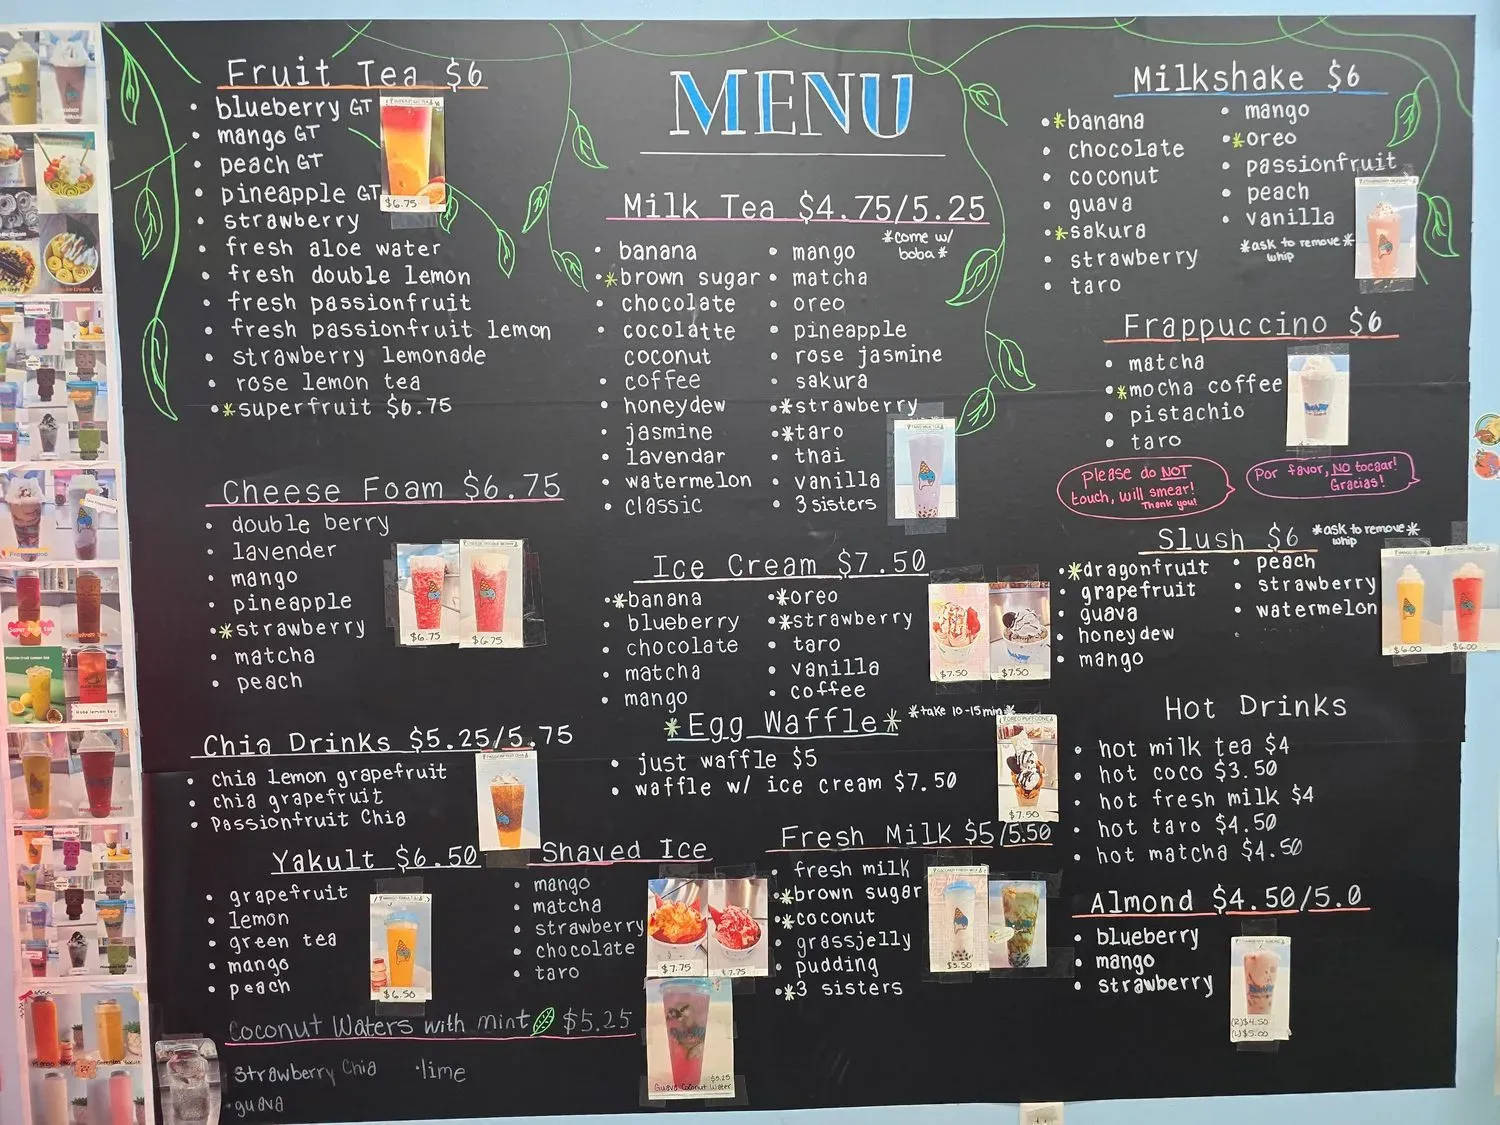 Fruit Tea $6
blueberry GT
mango GT
peach GT
pineapple GT
strawberry
fresh aloe water
fresh double lemon
fresh passionfruit
fresh passionfruit lemon
strawberry lemonade
rose lemon tea
*superfruit $6.75
$6.75
Cheese Foam $6.75
double berry
lavender
mango
pineapple
*strawberry
matcha
peach
$6.75
$6.75
Chia Drinks $5.25/5.75
chia lemon grapefruit
chia grapefruit
Passionfruit Chia
Yakult $6.50
grapefruit
lemon
green tea
mango
peach
$6.50
Coconut Waters with mint $5.25
Strawberry Chia
guava
lime
MENU
Milk Tea $4.75/5.25
*come w/
boba*
banana
*brown sugar
chocolate
cocolatte
coconut
coffee
honeydew
jasmine
lavendar
watermelon
classic
mango
matcha
oreo
pineapple
rose jasmine
sakura
*strawberry
*taro
thai
vanilla
3 sisters
Ice Cream $7.50
*banana
blueberry
chocolate
matcha
mango
*oreo
*strawberry
taro
vanilla
coffee
$7.50
$7.50
*Egg Waffle*
*take 10-15min*
just waffle $5
waffle w/ ice cream $7.50
$7.50
Shaved Ice
mango
matcha
strawberry
chocolate
taro
$7.75
$7.75
Guava Coconut Water
$5.25
Fresh Milk $5/5.50
fresh milk
*brown sugar
*coconut
grassjelly
pudding
*3 sisters
$5.50
Milkshake $6
*banana
chocolate
coconut
guava
*sakura
strawberry
taro
mango
*oreo
passionfruit
peach
vanilla
*ask to remove*
whip
Frappuccino $6
matcha
*mocha coffee
pistachio
taro
Please do NOT
touch, will smear!
Thank you!
Por favor, NO tocaar!
Gracias!
Slush $6
*ask to remove*
whip
*dragonfruit
grapefruit
guava
honeydew
mango
peach
strawberry
watermelon
$6.00
$6.00
Hot Drinks
hot milk tea $4
hot coco $3.50
hot fresh milk $4
hot taro $4.50
hot matcha $4.50
Almond $4.50/5.0
blueberry
mango
strawberry
(R)$4.50
(L)$5.00